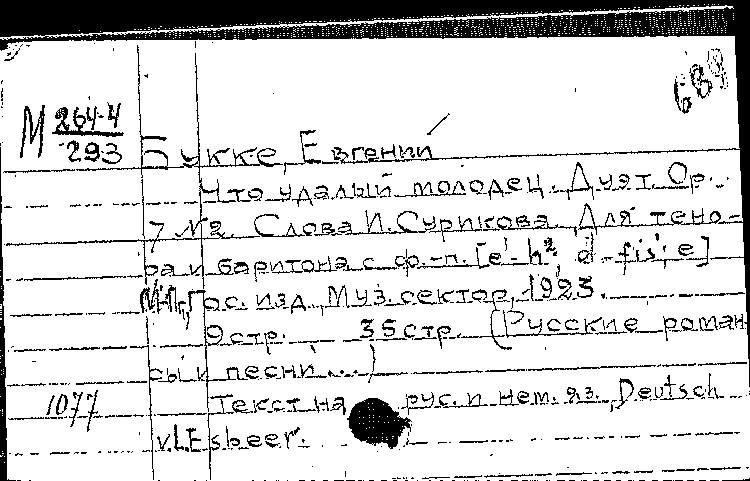 689
М 264-4
293
Букке, Евгений
Что удалый молодец. Дуэт. Op.
7 №2. Слова И.Сурикова. Для тено-
ра и баритона с ф.-п. [e'-h², d-fis'; e]
М.-П., Гос. изд., Муз. сектор, 1923.
9 стр. 35 стр. (Русские роман-
сы и песни...)
1077 Текст на рус. и нем. яз., Deutsch
v. I. Esbeer.